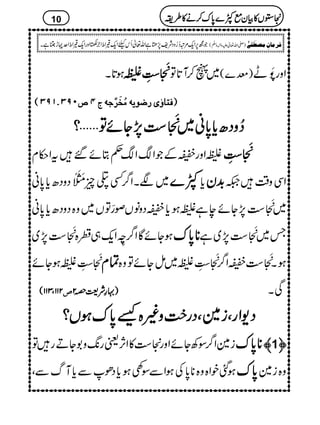 نجاستوں کا بیان مع کپڑے پاک کرنے کا طریقہ
10
فرمانِ مصطفٰے
اور پوٹے (معدے) میں پہنچ کر آتا تو نَجاستِ غلیظہ ہوتا۔
(فتاوٰی رضویہ مُخَرَّجہ ج ۴ ص ۳۹۰۔۳۹۱)
دُودھ یا پانی میں نَجاست پڑ جائے تو......؟
نَجاستِ غلیظہ اور خفیفہ کے جو الگ الگ حکم بتائے گئے ہیں یہ احکام
اُسی وقت ہیں جبکہ بدن یا کپڑے میں لگے۔ اگر کسی پتلی چیز مَثَلًا دودھ یا پانی
میں نَجاست پڑ جائے چاہے غلیظہ ہو یا خفیفہ دونوں صورَتوں میں وہ دودھ یا پانی
جس میں نَجاست پڑی ہے ناپاک ہو جائے گا اگرچہ ایک ہی قطرہ نَجاست پڑی
ہو۔ نَجاستِ خفیفہ اگر نَجاستِ غلیظہ میں مل جائے تو وہ تمام نَجاستِ غلیظہ ہو جائے
گی۔ (بہارِ شریعت حصہ۲ ص۱۱۲،۱۱۳)
دیوار، زمین، درخت وغیرہ کیسے پاک ہوں؟
﴿1﴾ ناپاک زمین اگر سوکھ جائے اور نَجاست کا اثر یعنی رنگ و بو جاتے رہیں تو
وہ زمین پاک ہو گئی خواہ وہ ناپاکی ہوا سے سوکھی ہو یا دھوپ سے یا آگ سے،